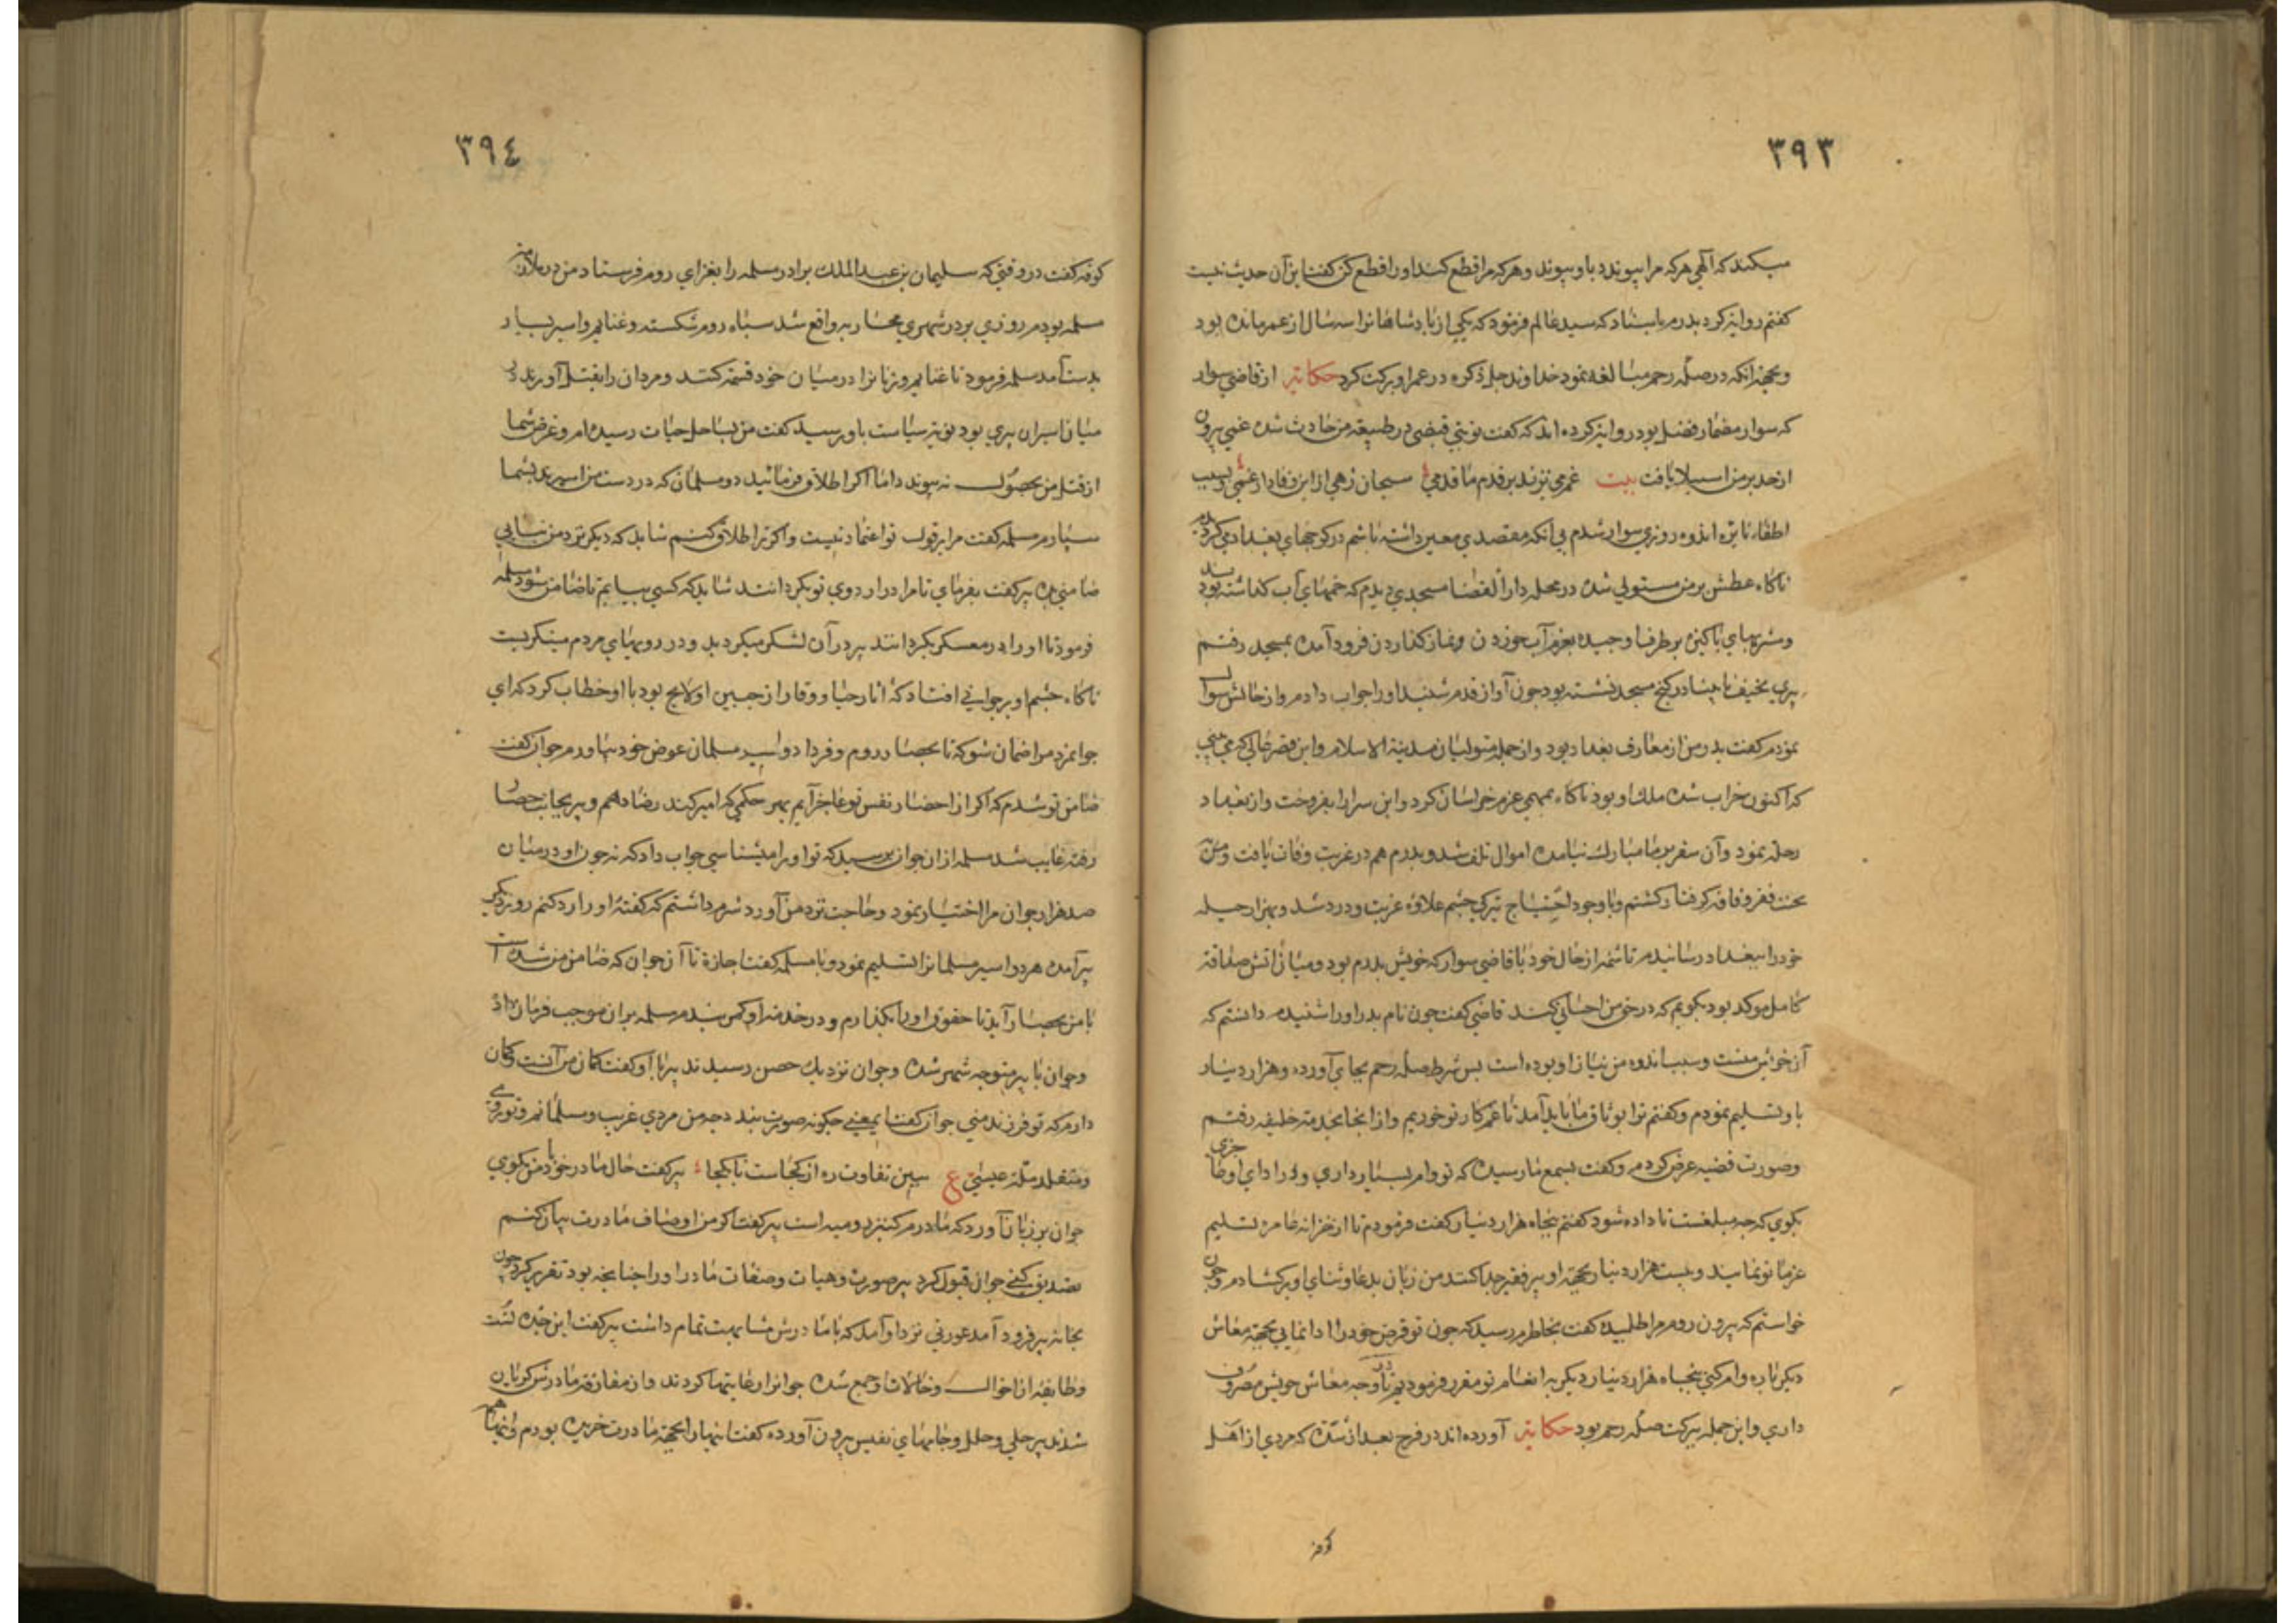 ۳۹۳
میکند که الهی هرکه مرا پیوندد با او پیوند و هرکه مرا قطع کند او را قطع کن گفت این آن حدیث نیست
کفتم روایة کرد پدرم باسناد که سید عالم فرمود که یکی از پادشاهانرا سه سال از عمر مانده بود
و بجهة انکه در صله رحم مبالغه نمود خداوند جل ذکره در عمر او برکت کرد حکایة از قاضی سوار
که سوار مضمار فضل بود روایة کرده اند که کفت نوبتی قبضی در طبیعة من حادث شد و غمی بیرون
از حد بر من استیلا یافت بیت غم می نزند بر قدم ما قدمی سبحان زهی از این وفادار غمی بسبب
اطفاء نایره اندوه روزی سوار شدم بی انکه مقصدی معین داشته باشم در کوچهای بغداد می کردیدم
ناکاه عطش بر من مستولی شد در محله دار القضا مسجدی دیدم که خمهای آب نهاده بود
و شربهای پاکیزه بر طرف او چیده بعزم آب خوردن و نماز کذاردن فرود آمده بمسجد رفتم
پیری نحیف نابینا در کنج مسجد نشسته بود چون آواز قدم شنید او را جواب دادم و از حالش سوال
نمودم کفت پدر من از معارف بغداد بود و از جمله متولیان مدینة الاسلام و این قصر عالی که می بینی
که اکنون خراب شده ملک او بود ناکاه بمهمی عزم خراسان کرد و این سرای را بفروخت و از بغداد
رحلة نمود و آن سفر بر ما مبارک نیامده اموال تلف شد و پدرم هم در غربت وفات یافت و من
بمحنت فقر و فاقه کرفتار کشتم و با وجود احتیاج تیرکی چشم علاوه غربت و درد شد و بهزار حیله
خود را ببغداد رسانیدم تا شمه از حال خود با قاضی سوار که خویش پدرم بود و میان ایشان صداقة
کامل موکد بود بکویم که در حق من احسانی کند قاضی کفت چون نام پدر او را شنیدم دانستم که
آن خویش منست و سبب اندوه من نیاز او بوده است پس شرط صله رحم بجای آورده و هزار دینار
باو تسلیم نمودم و کفتم ترا بوثاق ما باید آمد تا غم کار تو خوریم و از انجا بخدمة خلیفه رفتم
و صورت قضیه عرض کردم و کفت بسمع ما رسیده که تو وام بسیار داری و در ادای او عاجزی
بکوی که چه مبلغست تا داده شود کفتم پنجاه هزار دینار کفت فرمودم تا از خزانه عامره تسلیم
غرماء تو نمایند و بیست هزار دینار بجهة او پیر فقیر جدا کنند من زبان بدعا و ثنای او برکشادم و چون
خواستم که بیرون روم مرا طلبیده کفت بخاطرم رسید که چون تو قرض خود را ادا نمائی بجهة معاش
دیکر باره وام کنی پنجاه هزار دینار دیکر به انعام تو مقرر فرمودیم تا در وجه معاش خویش مصروف
داری و این جمله ببرکت صله رحم بود حکایة آورده اند در فرج بعد از شدت که مردی از اهل
کوفه
۳۹٤
کوفه کفت در وقتی که سلیمان بن عبد الملک برادر مسلمه را بغزای روم فرستاد من در ملازمت
مسلمه بودم روزی بر در شهری محاربه واقع شد سپاه روم شکسته و غنایم و اسیر بسیار
بدست آمد مسلمه فرمود تا غنایم و زنانرا در میان خود قسمة کنند و مردان را بقتل آورند در
میان اسیران پیری بود نوبة سیاست باو رسید کفت من بساحل حیات رسیده ام و غرض شما
از قتل من بحصول نه پیوندد اما اکر اطلاق فرمائید دو مسلمان که در دست من اسیرند بشما
سپارم مسلمه کفت مرا بر قول تو اعتماد نیست و اکر ترا اطلاق کنم شاید که دیکر نزد من نیایی
ضامنی بده پیر کفت بفرمای تا مرا در اردوی تو بکردانند شاید که کسی بیابم تا ضامن شود مسلمه
فرمود تا او را در معسکر بکردانند پیر در آن لشکر میکردید و در رویهای مردم مینکریست
ناکاه چشم او بر جوانی افتاد که اثار حیا و وقار از جبین او لایح بود با او خطاب کرد که ای
جوانمرد مرا ضمان شو که تا بحصار روم و فردا دو اسیر مسلمان عوض خود بیاورم جوان کفت
ضامن تو شدم که اکر از احضار نفس تو عاجز آیم بهر حکمی که امیر کند رضا دهم و پیر بجانب حصار
رفته غایب شد مسلمه از ان جوان پرسید که تو او را میشناسی جواب داد که نه چون او در میان
صد هزار جوان مرا اختیار نمود و حاجت نزد من آورد شرم داشتم که کفته او را رد کنم روز دیکر
پیر آمده هر دو اسیر مسلمانرا تسلیم نمود و با مسلمه کفت اجازة تا آن جوان که ضامن من شده است
با من بحصار آید تا حقوق او را بکذارم و در خدمة او کمر بندم مسلمه بران موجب فرمان داد
و جوان با پیر متوجه شهر شده و چون نزدیک حصن رسیدند پیر با او کفت کمان من آنست و کمان
دارم که تو فرزند منی جوان کفت این معنی چکونه صورت بندد چه من مردی غریب و مسلمانم و تو رومی
و متقلد ملة عیسی ع ببین تفاوت ره از کجاست تا بکجا پیر کفت حال مادر خود با من بکوی
جوان بر زبان آورد که مادرم کنیز رومیه است پیر کفت اکر من اوصاف مادرت بیان کنم
تصدیق کنی جوان قبول کرد پیر صورت و هیات و صفات مادر او را چنانچه بود تقریر کرد چون
بخانه پیر فرود آمد عورتی نزد او آمد که با مادرش مشابهت تمام داشت پیر کفت این جده تست
و طایفه از اخوال و خالات او جمع شده جوانرا رعایتها کردند و از مفارقة مادرش کریان
شدند پیر حلی و حلل و جامهای نفیس بیرون آورده کفت اینها را بجهة مادرت خریده بودم و اینها هم